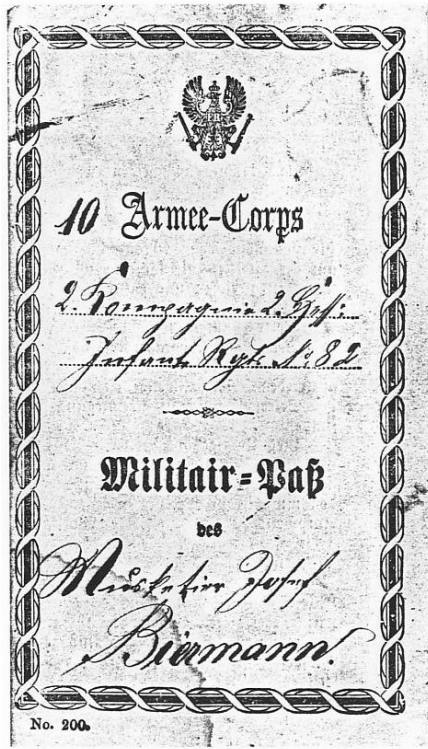 10 Armee-Corps
2. Kompagnie 2. Hess:
Infant. Rgts. No 82
Militair=Paß
des
Musketier Josef
Biermann.
No. 200.